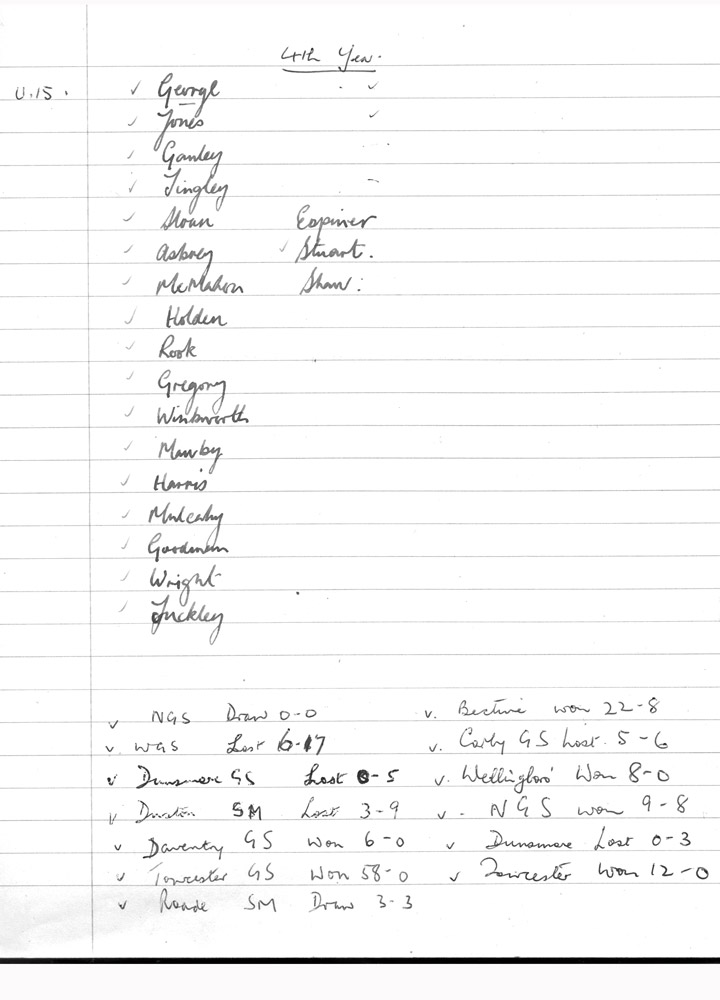 4th Year.
U.15. ✓ George ✓
✓ Jones ✓
✓ Ganley
✓ Tingley
✓ Sloan Espiner
✓ Asbrey ✓ Stuart.
✓ McMahon Shaw:
✓ Holden
✓ Rook
✓ Gregory
✓ Winkworth
✓ Mawby
✓ Harris
✓ Mulcahy
✓ Goodman
✓ Wright
✓ Tuckley
v NGS Draw 0-0 v. Bective won 22-8
v. WGS Lost 6-17 v. Corby GS Lost. 5-6
v Dunsmore GS Lost 0-5 v. Wellingboro' Won 8-0
v Duston SM Lost 3-9 v. NGS won 9-8
v Daventry GS Won 6-0 v Dunsmore Lost 0-3
v Towcester GS Won 58-0 v Towcester Won 12-0
v Roade SM Draw 3-3